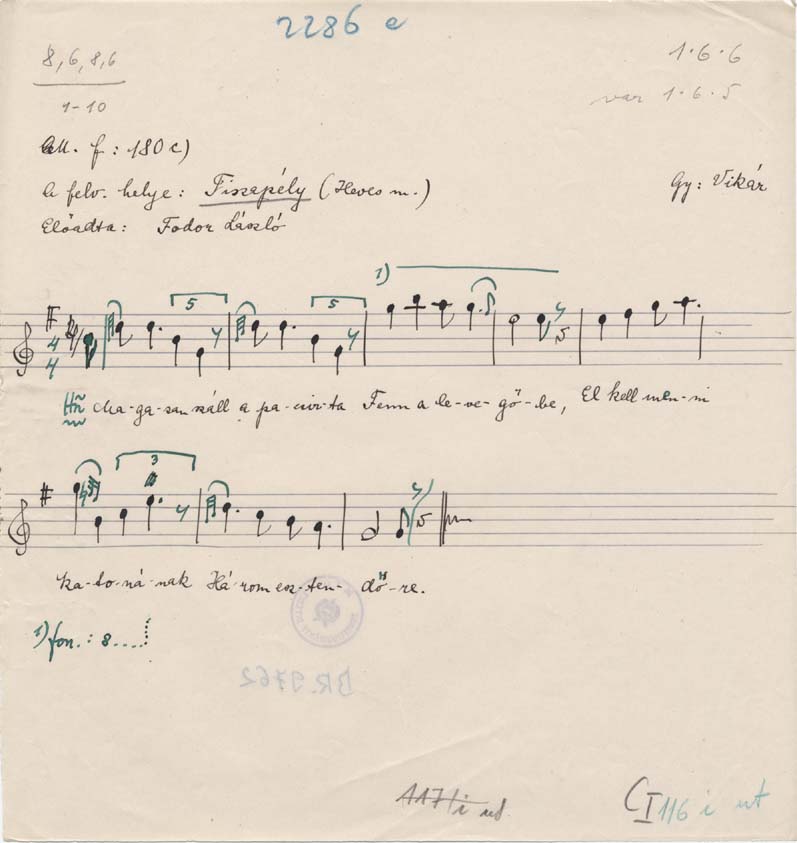 2286 e
8, 6, 8, 6
1-10
1·6·6
var 1·6·5
M. f: 180 c)
A felv. helye: Tiszapély (Heves m.)
Gy: Vikár
Előadta: Fodor László
5
5
1)
4
4
Hň Ma-ga-san száll a pa-csir-ta Fenn a le-ve-gő-be, El kell men-ni
3
ka-to-ná-nak Há-rom esz-ten-dő-re.
1) fon.: 8....
BR. 9762
117/i ut.
C I 116 i ut